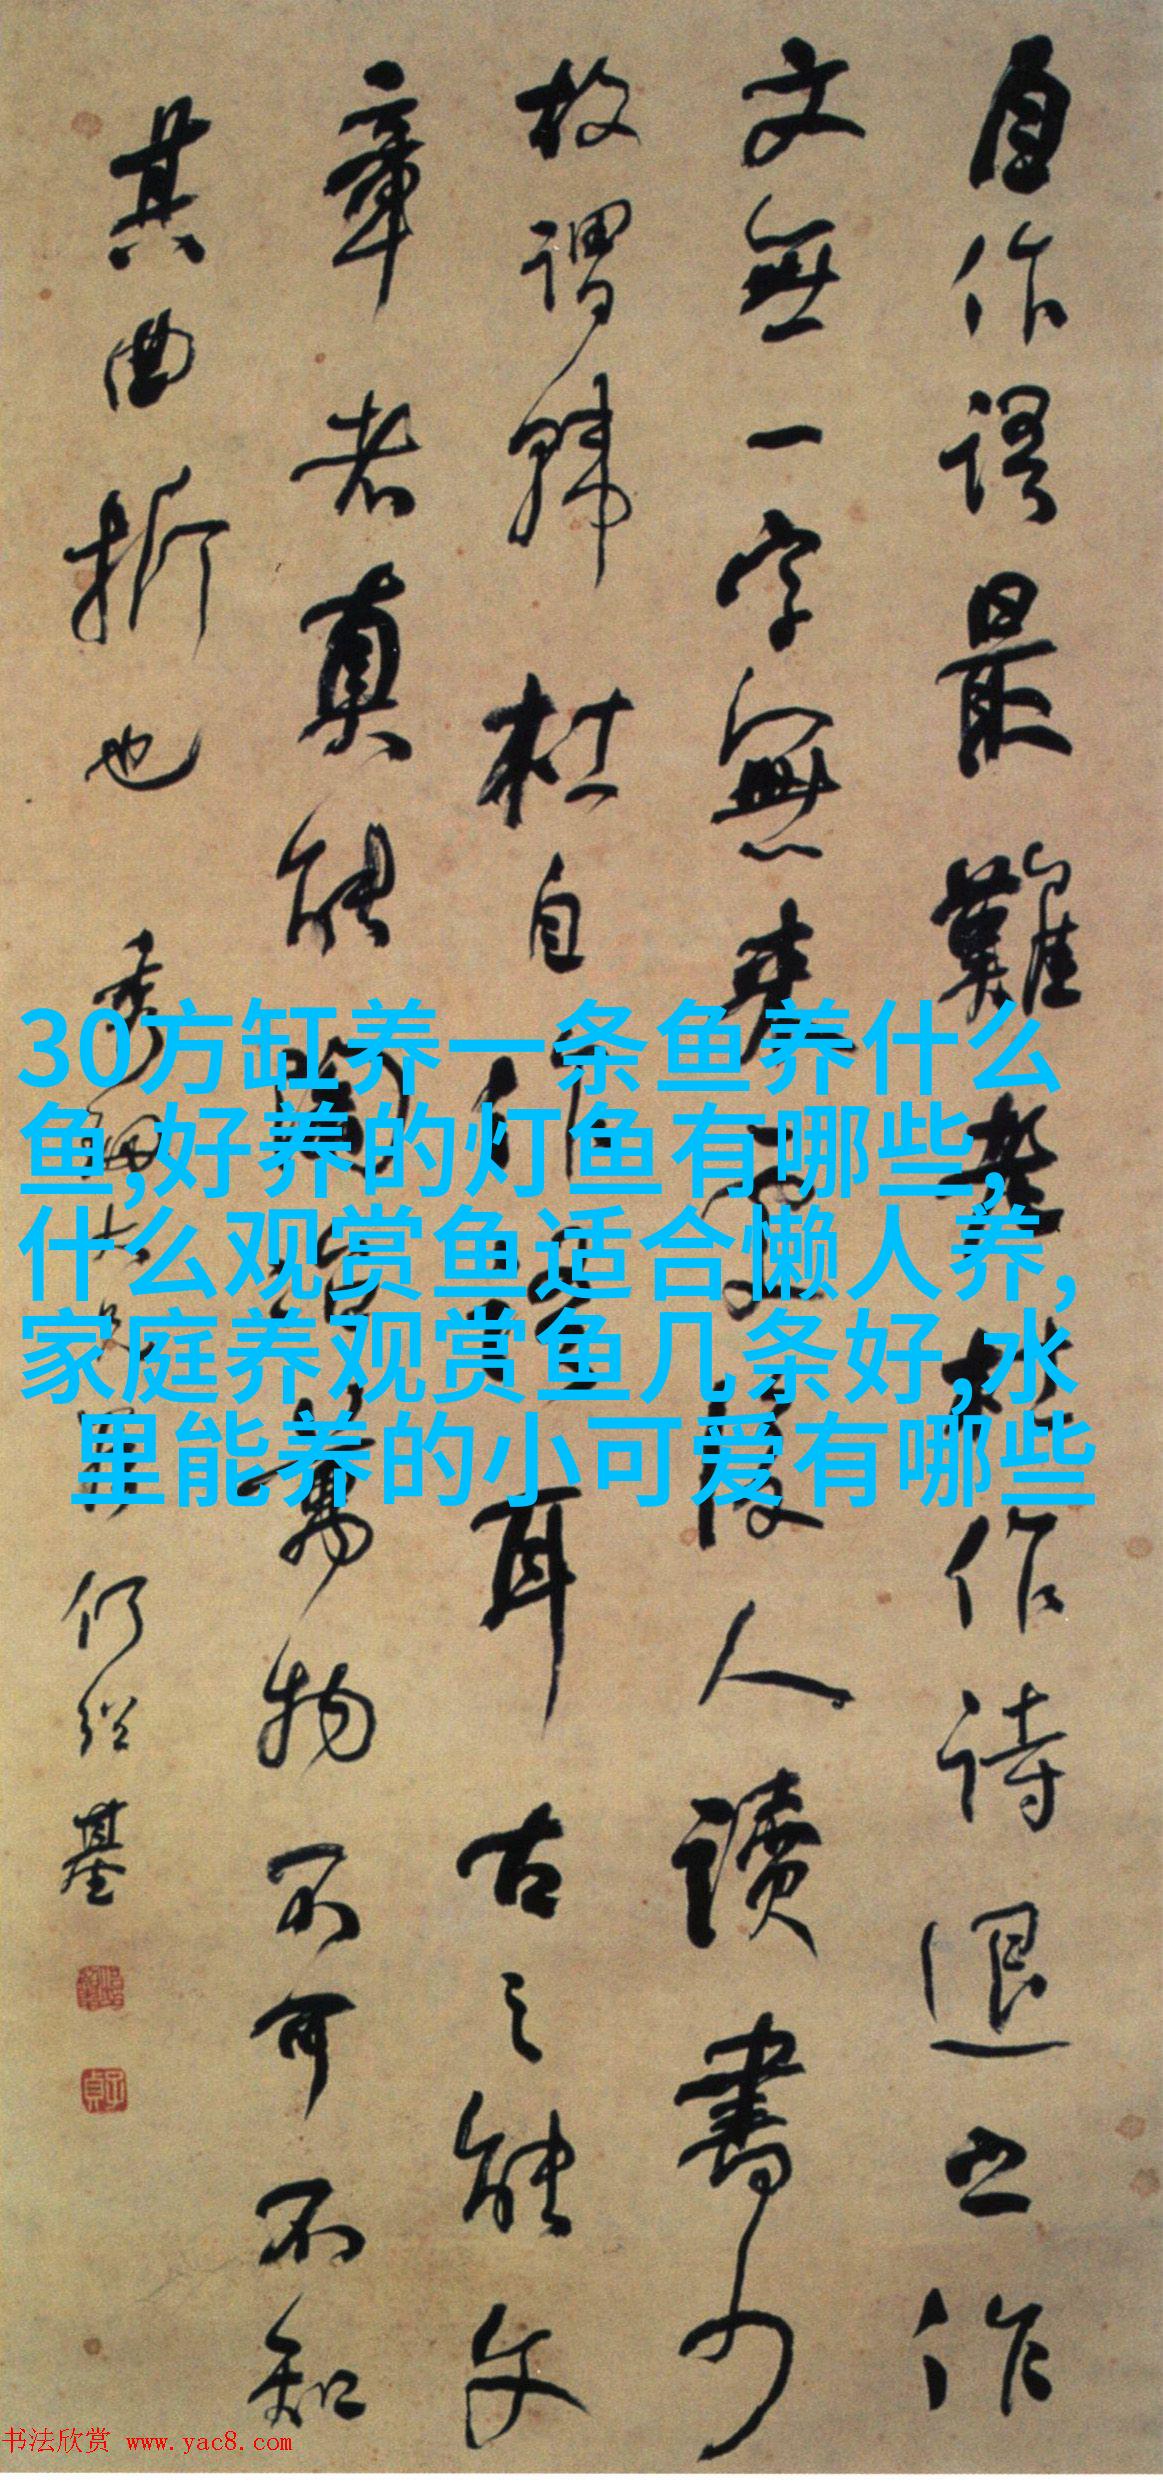 自作语最难老杜作诗退之作
文無一字無来
人读書少
故谓韩杜自作
耳古之能文
章者真能
萬物不可不知
其曲折也
何绍基
30方缸养一条鱼养什么
鱼,好养的灯鱼有哪些,
什么观赏鱼适合懒人养,
家庭养观赏鱼几条好,水
里能养的小可爱有哪些
书法欣赏 www.yac8.com